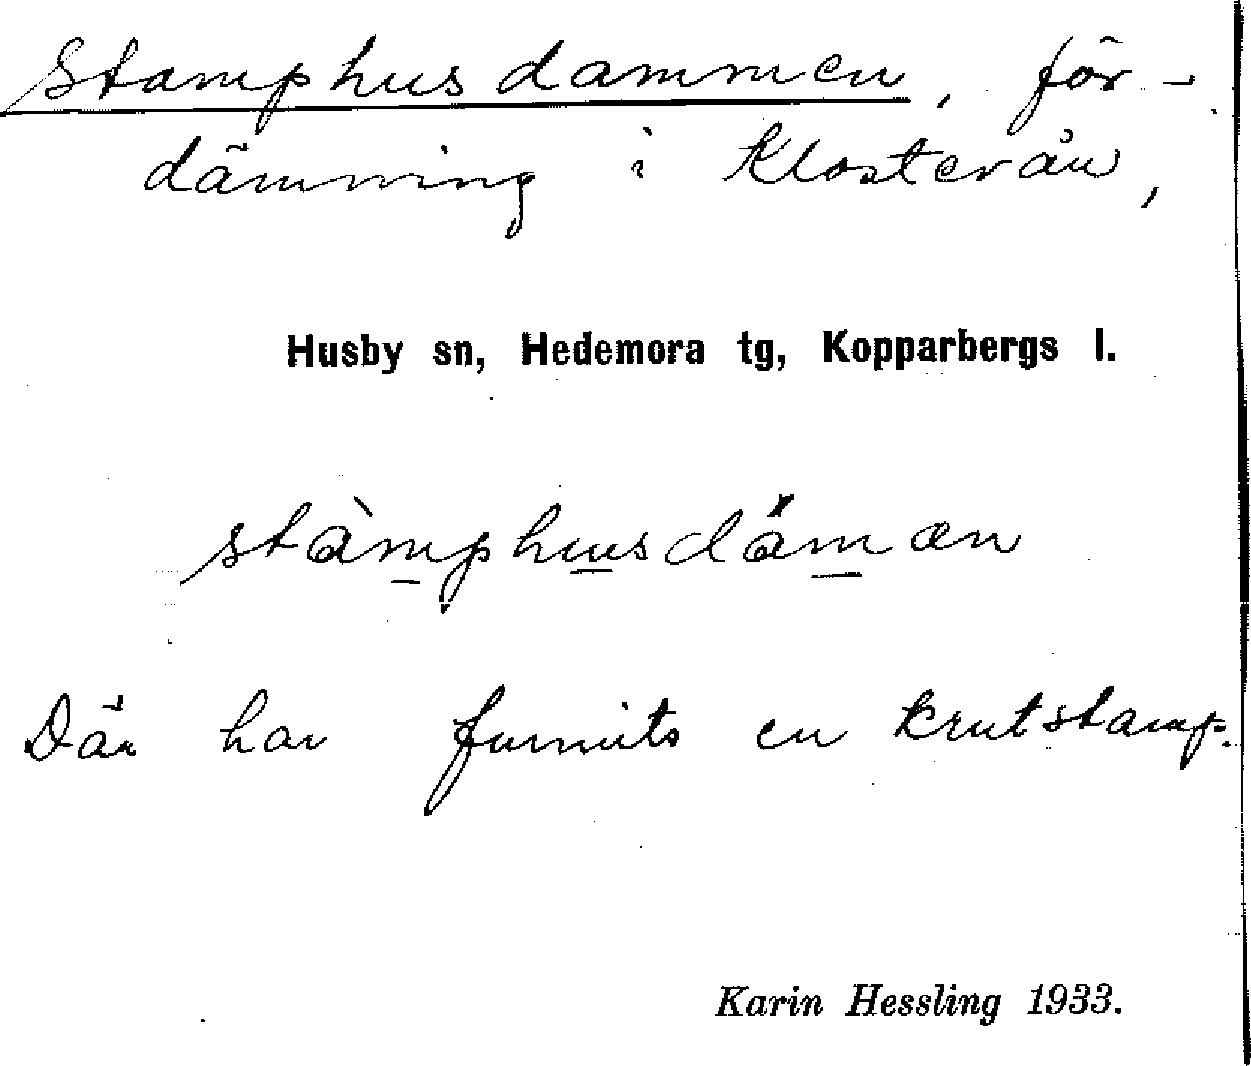 Stamphusdammen, för-
dämning i Klosterån,
Husby sn, Hedemora tg, Kopparbergs l.
stàmphusdämæn
Där har funnits en krutstamp.
Karin Hessling 1933.